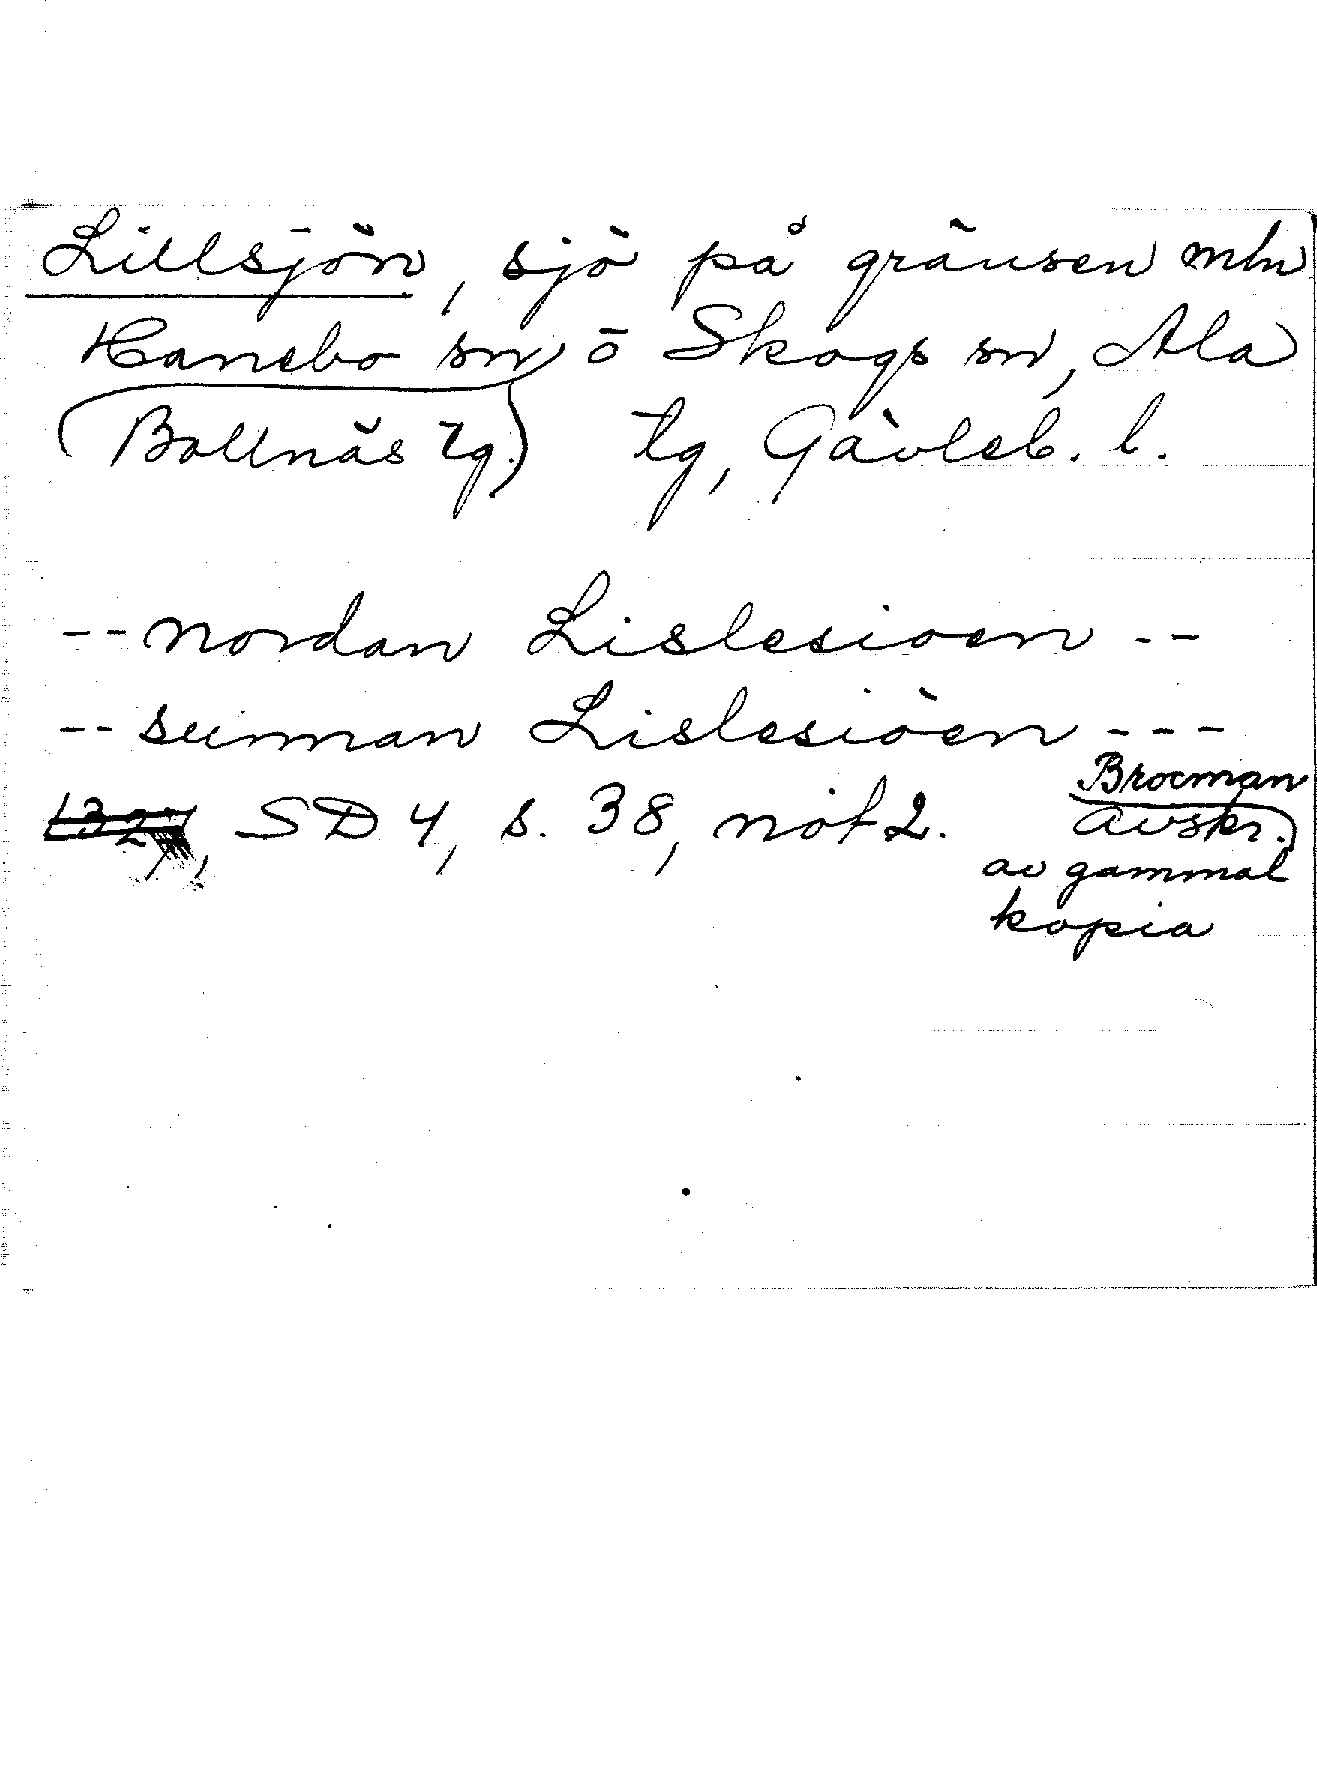 Lillsjön, sjö på gränsen mln
Hanebo sn o Skogs sn, Ala
(Bollnäs tg.) tg, Gävleb. l.
-- nordan Lislesioen --
-- sunnan Lislesiöen ---
1327, SD 4, s. 38, not 2.
Brocman
avskr.
av gammal
kopia